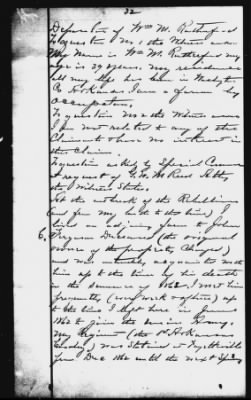 32
Deposition of Wm M. Rutherford
To question No 1 the Witness answers
My Name is Wm M. Rutherford my
age is 39 years. my residence
all my life has been in Washington
Co Arkansas I am a farmer by
occupation.
To question No 2 the Witness answers
I am not related to any of the
Claimants & have no interest in
the Claim.
To question asked by Special Commr
at request of G. W. M. Reed Atty
the Witness States.
At the outbreak of the Rebellion
and from my birth to the time I
lived on adjoining farm to John
6.
Ferguson Deceased (the original
owner of the property Charged)
and was intimately acquainted with
him up to the time of his death
in the summer of 1862, I met him
frequently (every week or oftener) up
to the time I left here in June
1862 to join the Union Army,
my Regiment (the 1st Arkansas
Cavalry) was stationed at Fayetteville
from Dec 1862 until the next Spring